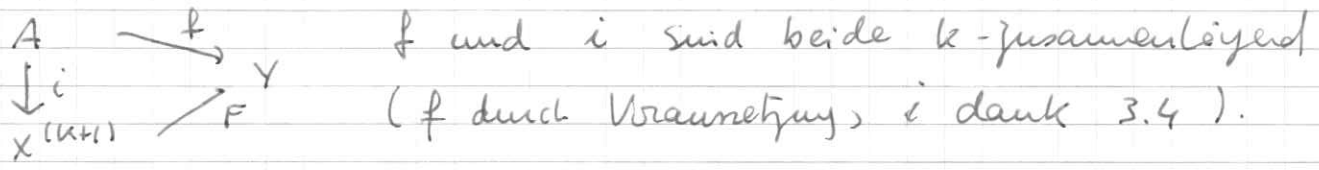 A f f und i sind beide k-zusammenhängend
i Y
X^(k+1) F (f durch Voraussetzung, i dank 3.4).